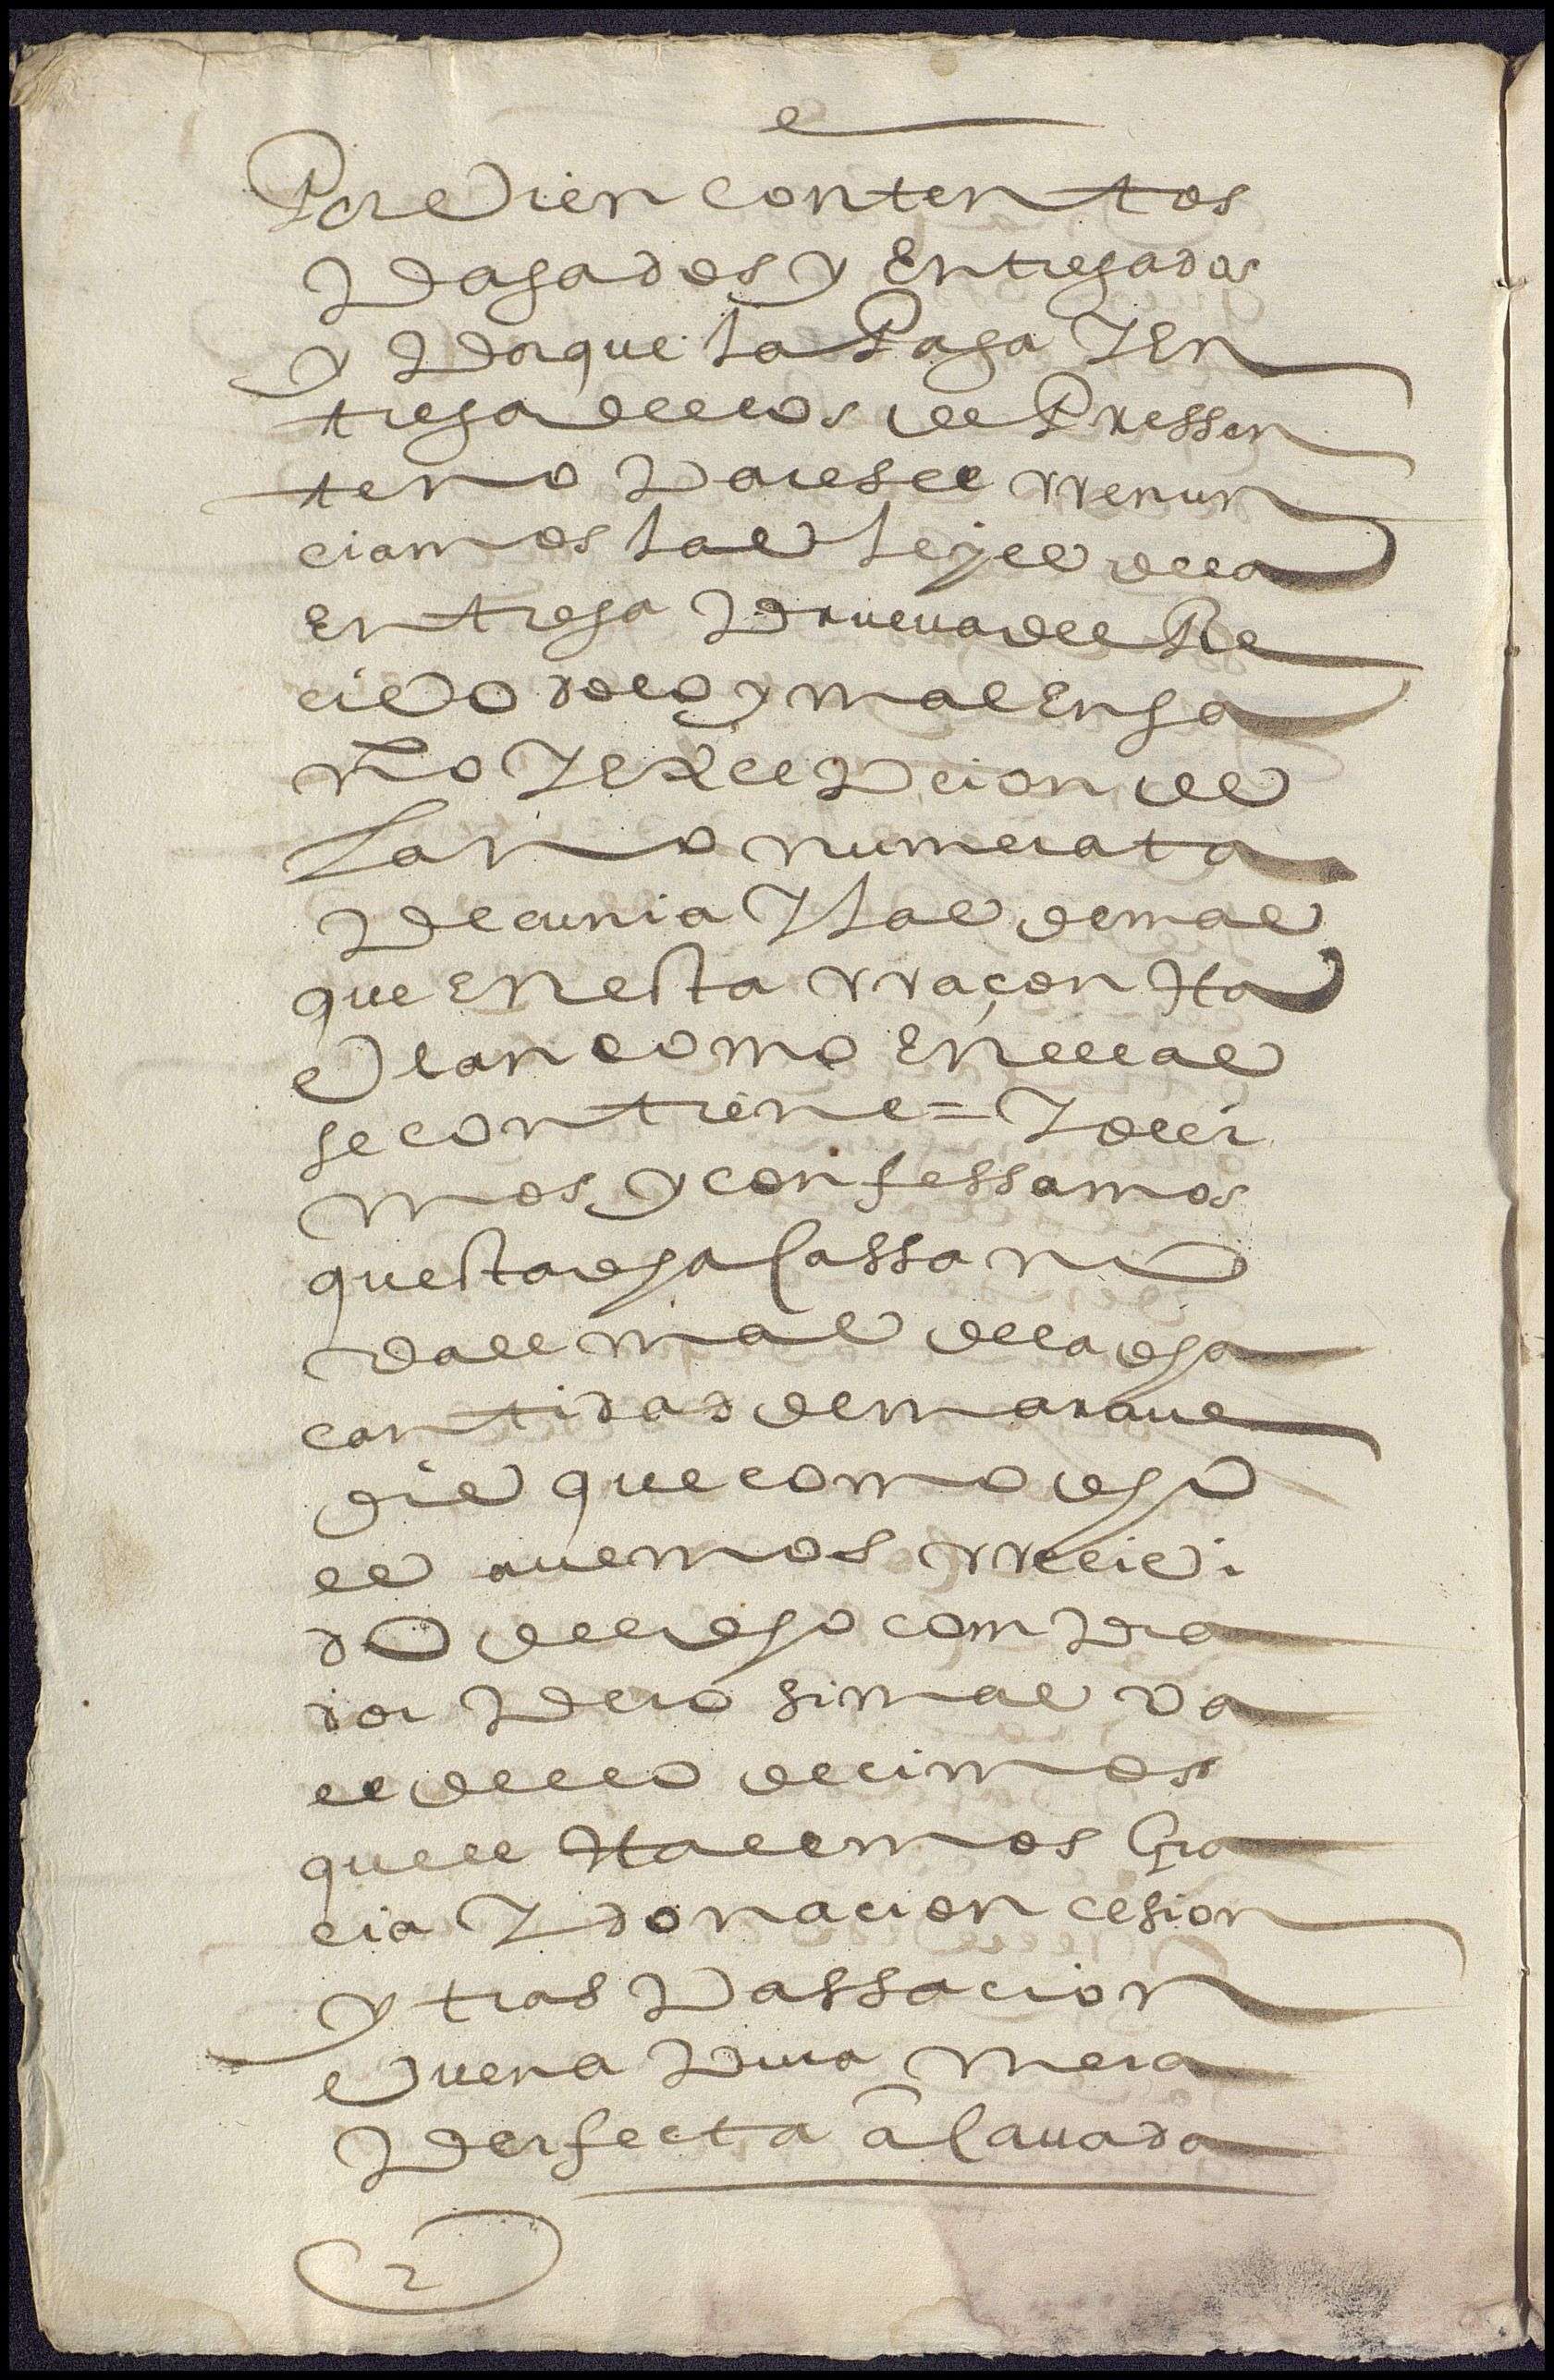 Por vien contentos
pagados y entregados
y porque la Paga y en
trega dellos de Pressen
te no parese rrenun
ciamos las leyes de la
entrega prueua del Re
civo dolo y mal enga
ño y exsepcion de
la no numerata
pecunia y las demas
que en esta rraçon ha
vlan como en ellas
se contiene = y deci
mos y confessamos
questa dha cassa no
vale mas de la dha
cantidad de maraue
dis que como dho
es auemos rrecivi
do del dho compra
dor pero si mas va
le dello decimos
que le hacemos gra
cia y donacion cesion
y traspassacion
vuena pura mera
perfecta acauada
2